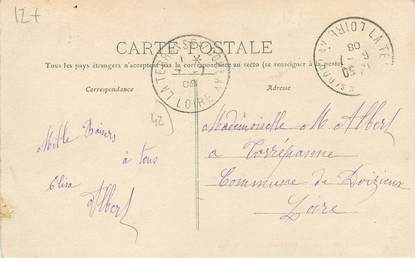 12+
CARTE POSTALE
Tous les pays étrangers n'acceptent pas la correspondance au recto (se renseigner à la poste)
Correspondance
Adresse
LOIRE
08
LOIRE
08
42
Mille Baisers
à tous
Elisa
Albert
Mademoiselle M. Albert
a
Commune de Doizieux
Loire